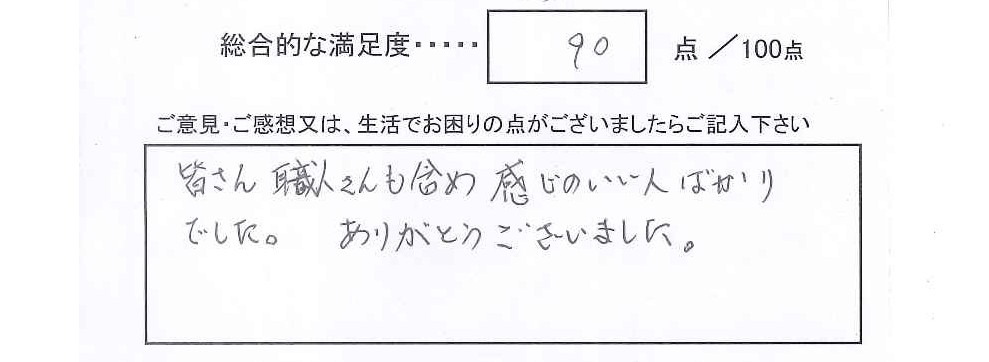 総合的な満足度・・・・・ 90 点 ／100点
ご意見・ご感想又は、生活でお困りの点がございましたらご記入下さい
皆さん 職人さんも含め 感じのいい人ばかり
でした。 ありがとうございました。